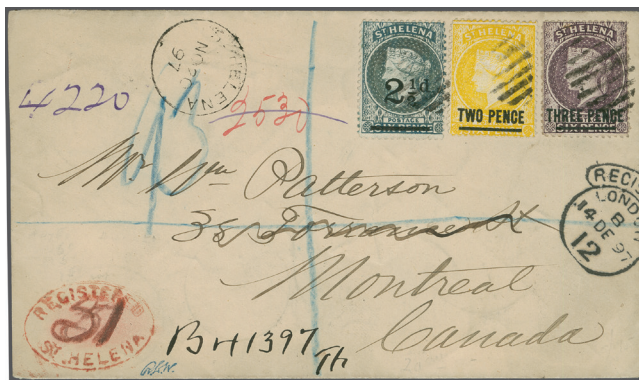 ST HELENA
NO
97
ST HELENA
2½d
POSTAGE
SIX PENCE
ST HELENA
TWO PENCE
ST HELENA
THREE PENCE
SIX PENCE
4220
2530
Mr. Wm Patterson
35 Torrance St
Montreal
Canada
LONDO
B
14 DE 97
12
REGISTERED
31
ST. HELENA
B41397
Th